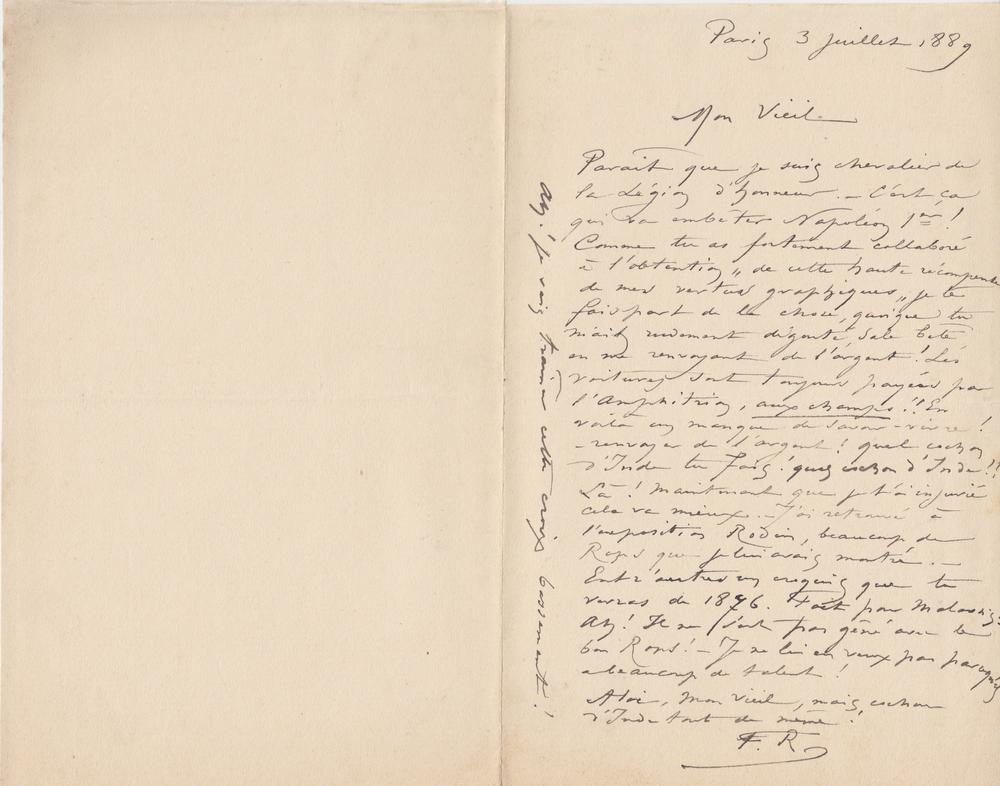 Paris 3 juillet 1889
Mon Vieil
Parait que je suis chevalier de
la Légion d'honneur. — C'est ça
qui va embêter Napoléon 1er !
Comme tu as fortement collaboré
à l'obtention „ de cette haute récompense
de mes vertus graphiques „ je te
fais part de la chose, quoique tu
m'ais rudement dégouté sale bete
en me renvoyant de l'argent ! Les
voitures sont toujours payées par
l'Amphitrion, aux champs !! En
voilà un manque de savoir-vivre !
– renvoyer de l'argent ! quel cochon
d'Inde tu fais ! quel cochon d'Inde !!
Là ! Maintenant que je t'ai injurié
cela va mieux. – J'ai retrouvé à
l'exposition Rodin, beaucoup de
Rops que je lui avais montré. —
Entr'autres un croquis que tu
verras de 1876. Fait pour
Ah ! Il ne s'est pas gêné avec le
bon Rops ! – Je ne lui en veux pas parcequ'il
a beaucoup de talent !
A toi, Mon Vieil, mais cochon
d'Inde tout de même !
F. R
Ah ! je vais trainer cette croix bassement !